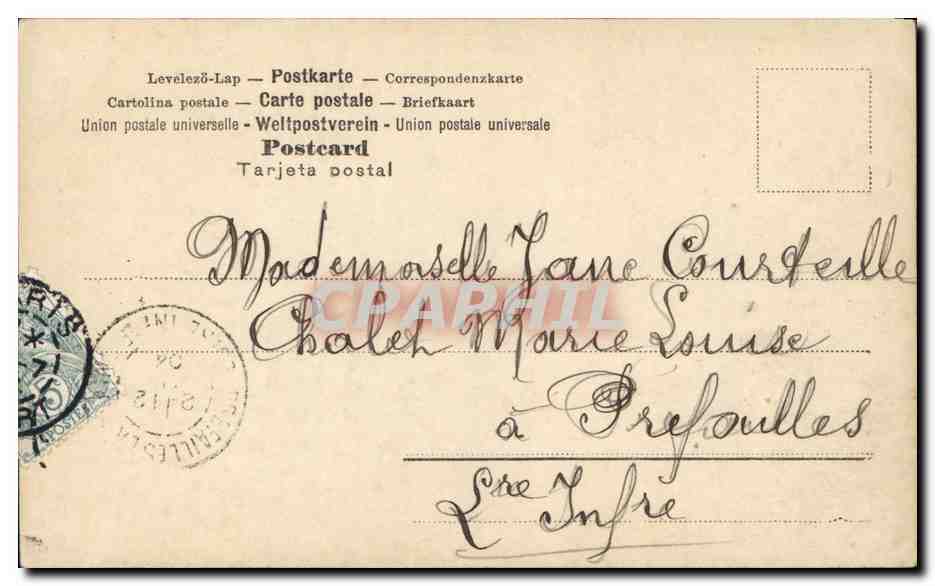 Levelező-Lap — Postkarte — Correspondenzkarte
Cartolina postale — Carte postale — Briefkaart
Union postale universelle - Weltpostverein - Union postale universale
Postcard
Tarjeta postal
Mademoiselle Jane Courteille
CPARPHIL
Chalet Marie Louise
à Prefailles
Lre Infre